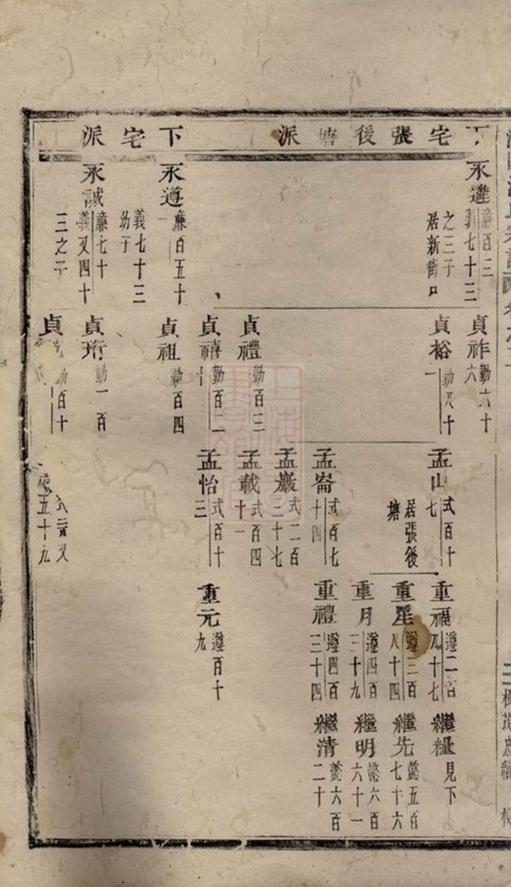 下宅張後塘派
下宅派
永達 廉百三
義七十三
之三子
居新街口
貞祚 勤六十
六
貞裕 勤八十
一
孟山 式百十
七
居張後
塘
重福 遵二百
八十七
繼種 見下
重星 遵三百
八十四
繼先 懿五百
七十六
重月 遵四百
三十九
繼明 懿六百
六十一
孟崙 式百七
十四
重禮 遵四百
三十四
繼清 懿六百
二十
孟巖 式二百
二十七
貞禮 勤百三
孟載 式百四
十一
貞禧 勤百二
十
孟怡 式百十
三
重元 遵百十
九
永遵 廉百五十
義七十三
幼子
貞祖 勤百四
永誠 廉七十
義又四十
三之子
貞珩 勤一百
貞 勤百十
五十九